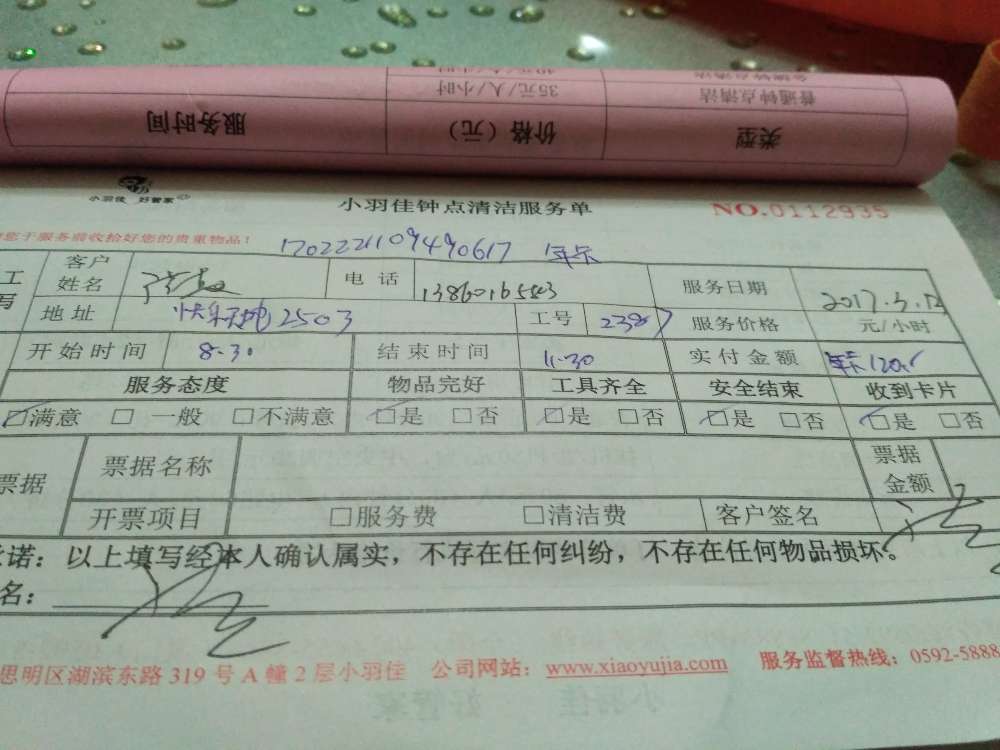 40元/人/小时 金牌钟点清洁
35元/人/小时 普通钟点清洁
服务时间 价格（元） 类型
小羽佳 好管家
小羽佳钟点清洁服务单 NO.0112935
您于服务前收拾好您的贵重物品！ 1702221109490617 年卡
工 客户姓名 电话 服务日期 2017.3.12
写 地址 快乐天地2503 工号 2387 服务价格 元/小时
开始时间 8.30 结束时间 11.30 实付金额 年卡120
服务态度 物品完好 工具齐全 安全结束 收到卡片
☑满意 □一般 □不满意 ☑是 □否 ☑是 □否 ☑是 □否 ☑是 □否
票据 票据名称 票据金额
开票项目 □服务费 □清洁费 客户签名
诺：以上填写经本人确认属实，不存在任何纠纷，不存在任何物品损坏。
名：
思明区湖滨东路319号A幢2层小羽佳 公司网站：www.xiaoyujia.com 服务监督热线：0592-5888
小羽佳 好管家